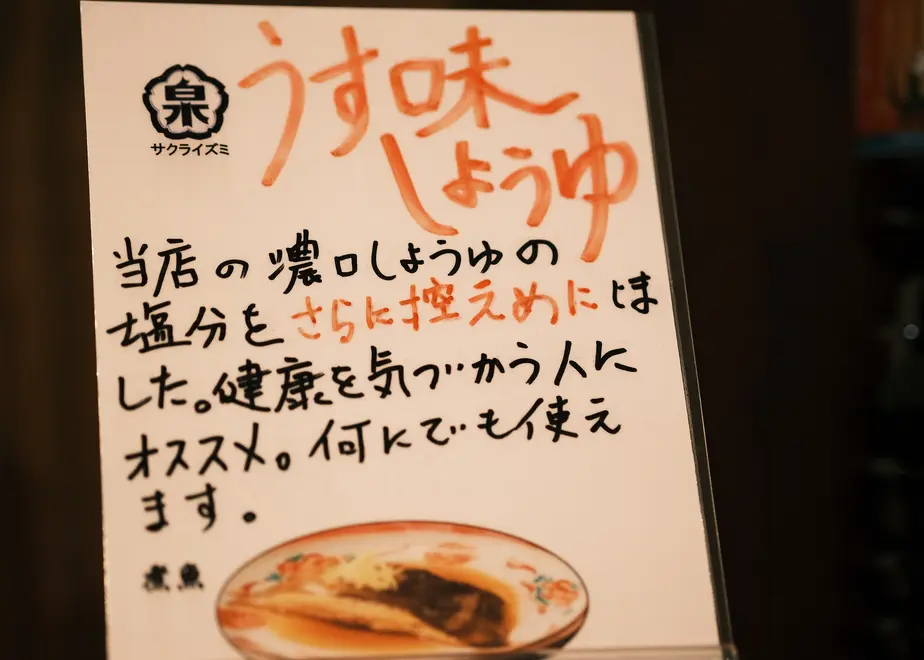 泉
サクライズミ
うす味
しょうゆ
当店の濃口しょうゆの
塩分をさらに控えめにしま
した。健康を気づかう人に
オススメ。何にでも使え
ます。
煮魚